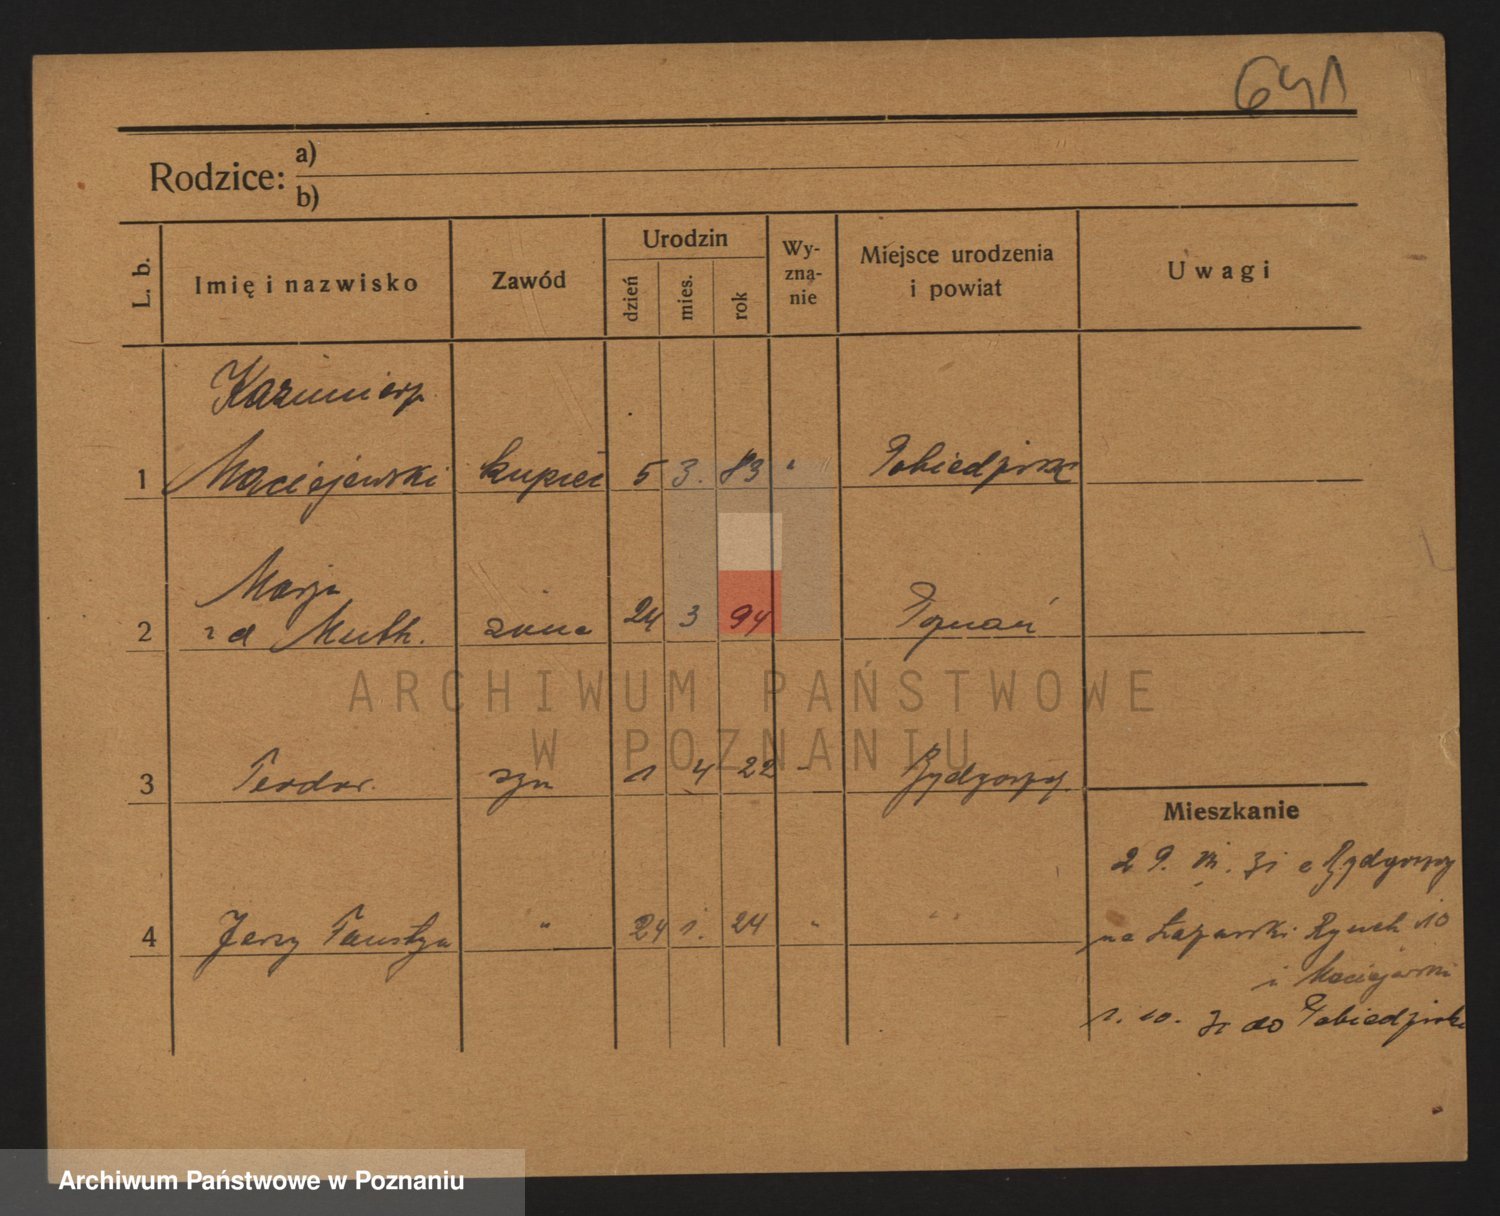 641
Rodzice: a)
b)
L. b. Imię i nazwisko Zawód Urodzin dzień mies. rok Wy-zna-nie Miejsce urodzenia i powiat Uwagi
Kazimierz
1 Maciejewski kupiec 5 3. 83 " Pobiedziska
Marja
2 z d Muth. żona 24 3 94 Poznań
3 Teodor. syn 1 4 22 - Bydgoszcz
Mieszkanie
29. 31 z Bydgoszczy
4 Jerzy Faustyn " 24 1. 24 " " "
na Łazarski Rynek 10
Maciejewski
1. 10. 31 do Pobiedzisk
ARCHIWUM PAŃSTWOWE
W POZNANIU
Archiwum Państwowe w Poznaniu